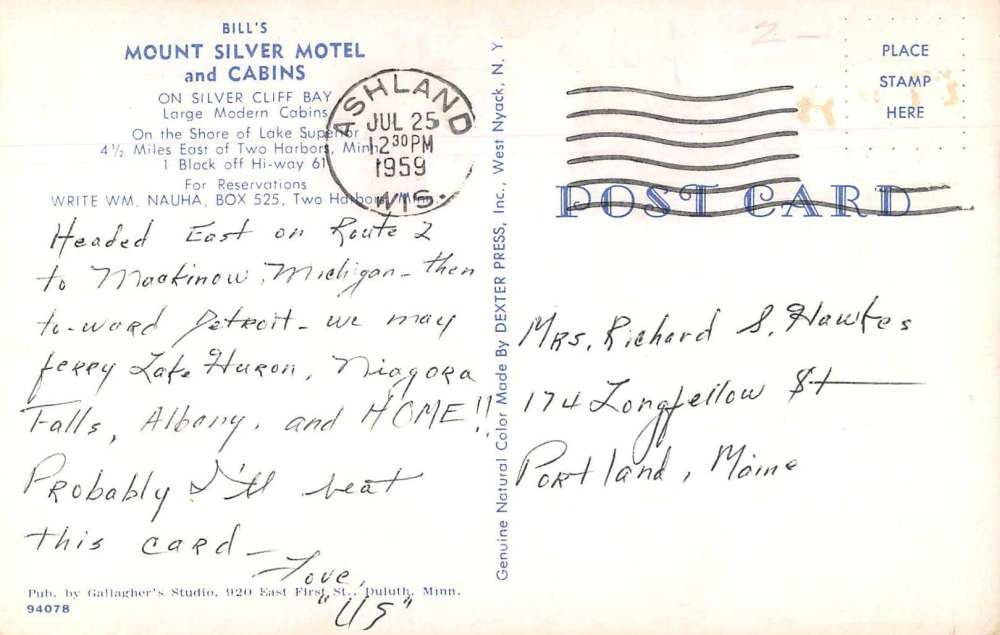 BILL'S
MOUNT SILVER MOTEL
and CABINS
ON SILVER CLIFF BAY
Large Modern Cabins
On the Shore of Lake Superior
4½ Miles East of Two Harbors, Minn.
1 Block off Hi-way 61
For Reservations
WRITE WM. NAUHA, BOX 525, Two Harbors, Minn.
ASHLAND
JUL 25
12 30 PM
1959
WIS.
Headed East on Route 2
to Mackinow, Michigan - then
to-ward Detroit - we may
ferry Lake Huron, Niagora
Falls, Albany, and HOME!!
Probably I'll beat
this card -
Love,
"US"
Pub. by Gallagher's Studio, 920 East First St., Duluth, Minn.
94078
Genuine Natural Color Made By DEXTER PRESS, Inc., West Nyack, N. Y.
2-
PLACE
STAMP
HERE
POST CARD
Mrs. Richard S. Hawkes
174 Longfellow St
Portland, Maine